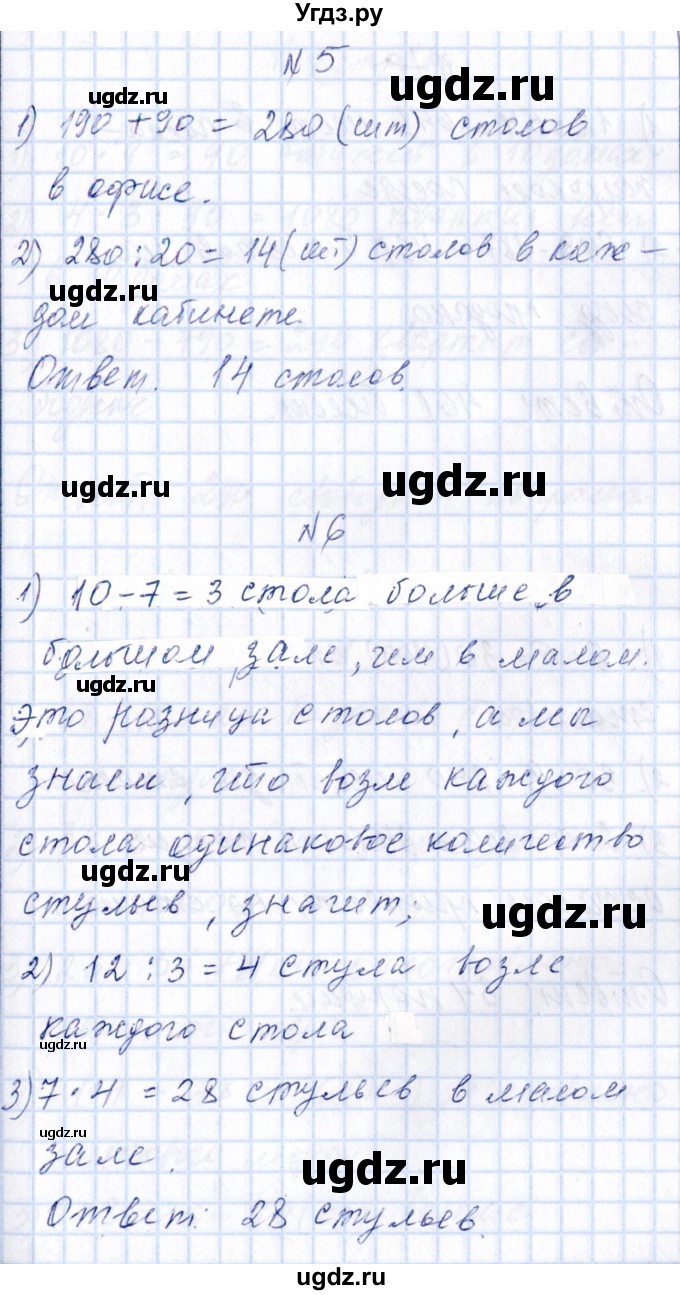 Угдз.ру
№5
ugdz.ru
ugdz.ru
1) 190 + 90 = 280 (шт) столов
в офисе.
2) 280 : 20 = 14 (шт) столов в каж-
ugdz.ru
дом кабинете.
Ответ. 14 столов.
ugdz.ru
ugdz.ru
№6
1) 10 - 7 = 3 стола больше в
большом зале, чем в малом.
ugdz.ru
Это разница столов, а мы
знаем, что возле каждого
стола одинаковое количество
ugdz.ru
стульев, значит;
ugdz.ru
2) 12 : 3 = 4 стула возле
каждого стола
ugdz.ru
3) 7 · 4 = 28 стульев в малом
ugdz.ru
зале.
ugdz.ru
Ответ: 28 стульев.
ugdz.ru